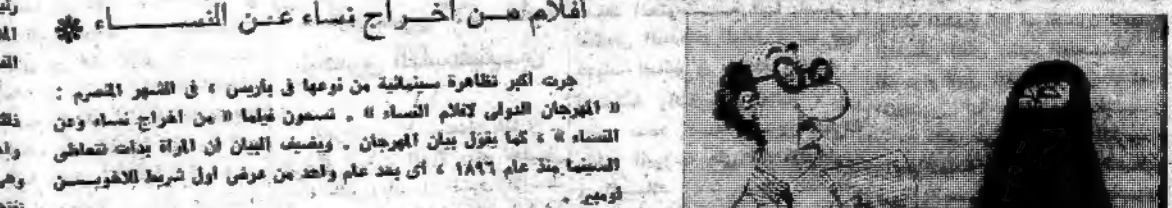 أفلام من أخراج نساء عن النساء *
جرت أكبر تظاهرة سينمائية من نوعها في باريس ، في الشهر المنصرم :
« المهرجان الدولى لافلام النساء » . تسعون فيلما « من اخراج نساء وعن
النساء » ، كما يقول بيان المهرجان . ويضيف البيان ان المراة بدات تتعاطى
السينما منذ عام ١٨٩٦ ، أى بعد عام واحد من عرض اول شريط للاخويــن
لوميير .